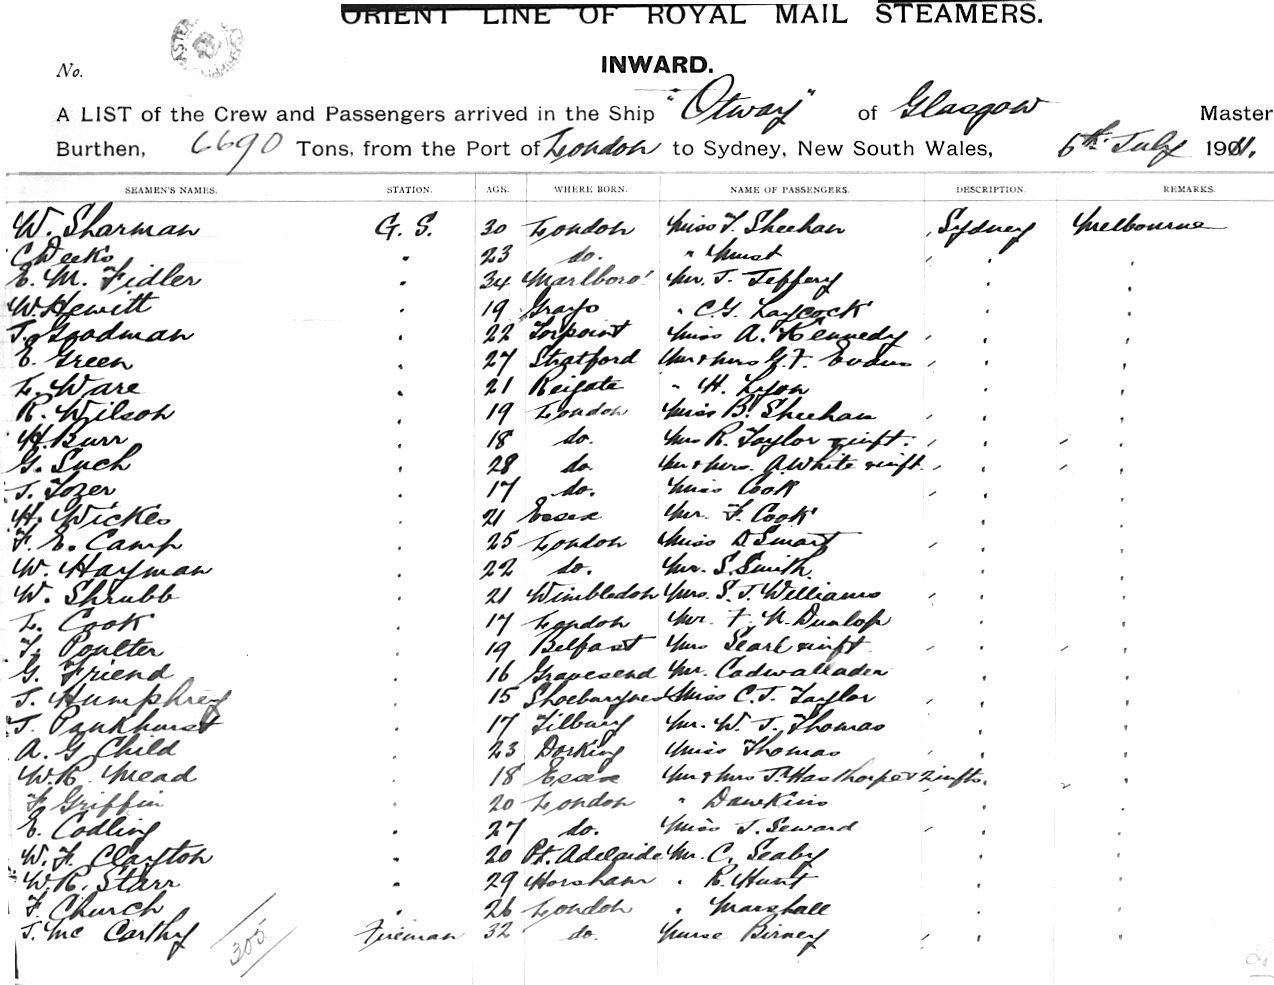 ORIENT LINE OF ROYAL MAIL STEAMERS.
No.
INWARD.
A LIST of the Crew and Passengers arrived in the Ship "Otway" of Glasgow Master
Burthen, 6690 Tons, from the Port of London to Sydney, New South Wales, 6th July 1911.
SEAMEN'S NAMES. STATION. AGE. WHERE BORN. NAME OF PASSENGERS. DESCRIPTION. REMARKS.
W. Sharman G. S. 30 London Miss F. Sheehan Sydney Melbourne
C Deeks " 23 do. " Must " "
E. M. Fidler " 34 Marlboro' Mr. J. Jeffery " "
W. Hewitt " 19 Grays " C G Laycock " "
J. Goodman " 22 Torpoint Miss A. Kennedy " "
E. Green " 27 Stratford Mr & Mrs G. F. Evans " "
L. Ware " 21 Reigate " H. Lyon " "
R. Wilson " 19 London Miss B. Sheehan " "
H. Burr " 18 do. Mrs R. Taylor & inft. " "
G. Such " 28 do Mr & Mrs. A. White & inft " "
J. Tozer " 17 do. Miss Cook " "
H. Wickes " 21 Essex Mr. F. Cook " "
F. E. Camp " 25 London Miss D Smart " "
W. Hayman " 22 do. Mr. S. Smith " "
W. Shrubb " 21 Wimbledon Mrs. S. J. Williams " "
L. Cook " 17 London Mr. F. N. Dunlop " "
F. Poulter " 19 Belfast Mrs Searl & inft " "
G. Friend " 16 Gravesend Mr. Cadwallader " "
J. Humphrey " 15 Shoeburyness Miss C. J. Taylor " "
J. Pankhurst " 17 Tilbury Mr. W. J. Thomas " "
A. G Child " 23 Dorking Miss Thomas " "
W. R. Mead " 18 Essex Mr & Mrs J. Hasthorpe & 2 infts. " "
F. Griffin " 20 London " Dawkins " "
E. Codling " 27 do. Miss J. Seward " "
W. F. Clayton " 20 Pt. Adelaide Mr. C. Seaby " "
W. R. Starr " 29 Horsham " R. Hunt " "
F. Church " 26 London " Marshall " "
J. Mc Carthy Fireman 32 do. Nurse Birney " "
305